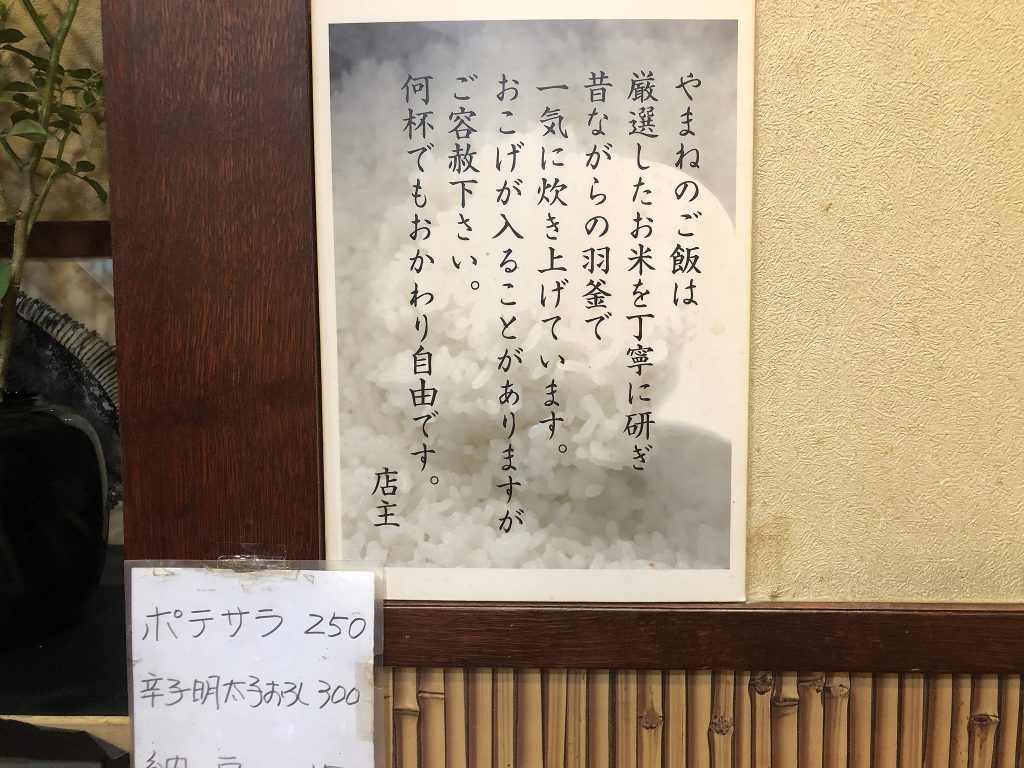 やまねのご飯は
厳選したお米を丁寧に研ぎ
昔ながらの羽釜で
一気に炊き上げています。
おこげが入ることがありますが
ご容赦下さい。
何杯でもおかわり自由です。
店主
ポテサラ 250
辛子明太子おろし 300